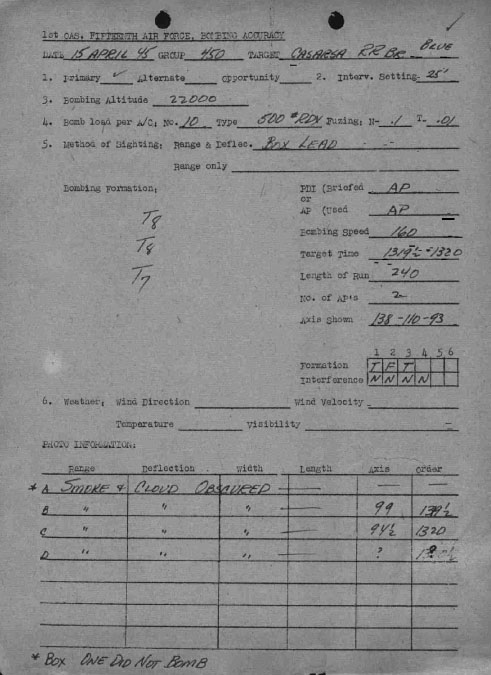 1st CAS. FIFTEENTH AIR FORCE, BOMBING ACCURACY
DATE 15 APRIL 45 GROUP 450 TARGET CASARSA RR BR BLUE
1. Primary ✓ Alternate Opportunity 2. Interv. Setting 25'
3. Bombing Altitude 22000
4. Bomb load per A/C: No. 10 Type 500 # RDX Fuzing: N- .1 T- .01
5. Method of Sighting: Range & Deflec. BOX LEAD
Range only
Bombing Formation: PDI (Briefed AP
or
T8 AP (Used AP
T8 Bombing Speed 160
Target Time 1319½-1320
T7 Length of Run 240
No. of AP's 2
Axis Shown 138-110-93
1 2 3 4 5 6
Formation T F T
Interference N N N N
6. Weather: Wind Direction Wind Velocity
Temperature Visibility
PHOTO INFORMATION:
Range Deflection Width Length Axis Order
* A SMOKE & CLOUD OBSCURED — — —
B " " " — 99
C " " " — 94½ 1320
D " " " — ?
* BOX ONE DID NOT BOMB